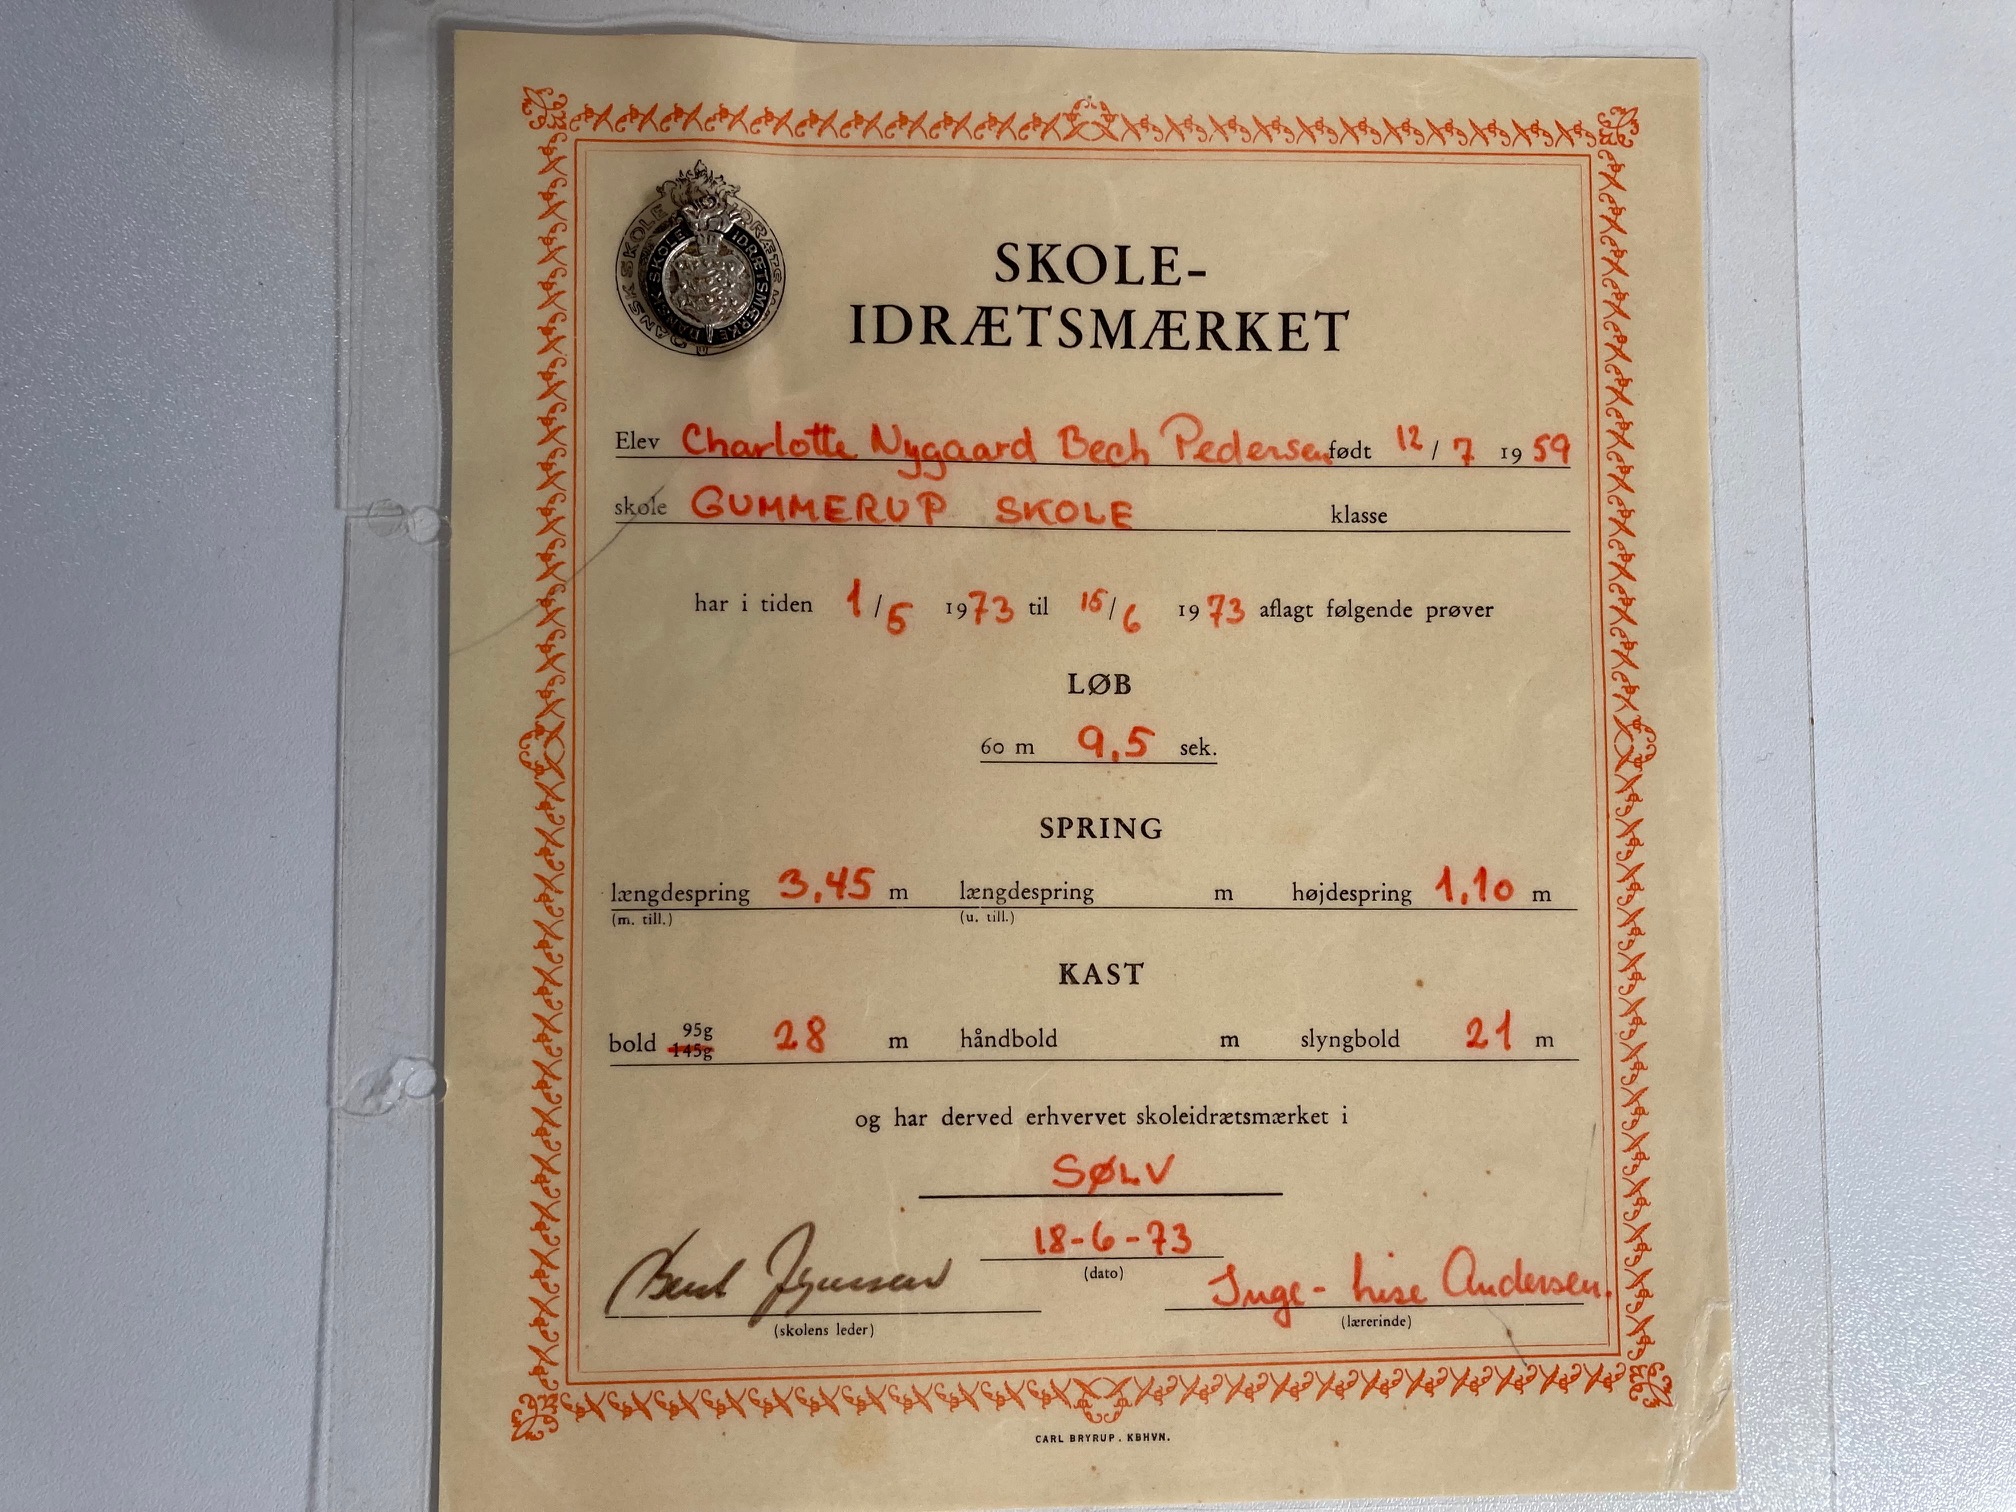 DANSK SKOLE IDRÆTSMÆRKE
DANSK SKOLE IDRÆTSMÆRKE
SKOLE-
IDRÆTSMÆRKET
Elev Charlotte Nygaard Bech Pedersen født 12/7 1959
skole GUMMERUP SKOLE klasse
har i tiden 1/5 1973 til 15/6 1973 aflagt følgende prøver
LØB
60 m 9,5 sek.
SPRING
længdespring 3,45 m længdespring m højdespring 1,10 m
(m. till.) (u. till.)
KAST
bold 95g 145g 28 m håndbold m slyngbold 21 m
og har derved erhvervet skoleidrætsmærket i
SØLV
18-6-73
(dato)
Inge-Lise Andersen.
(skolens leder) (lærerinde)
CARL BRYRUP . KBHVN.